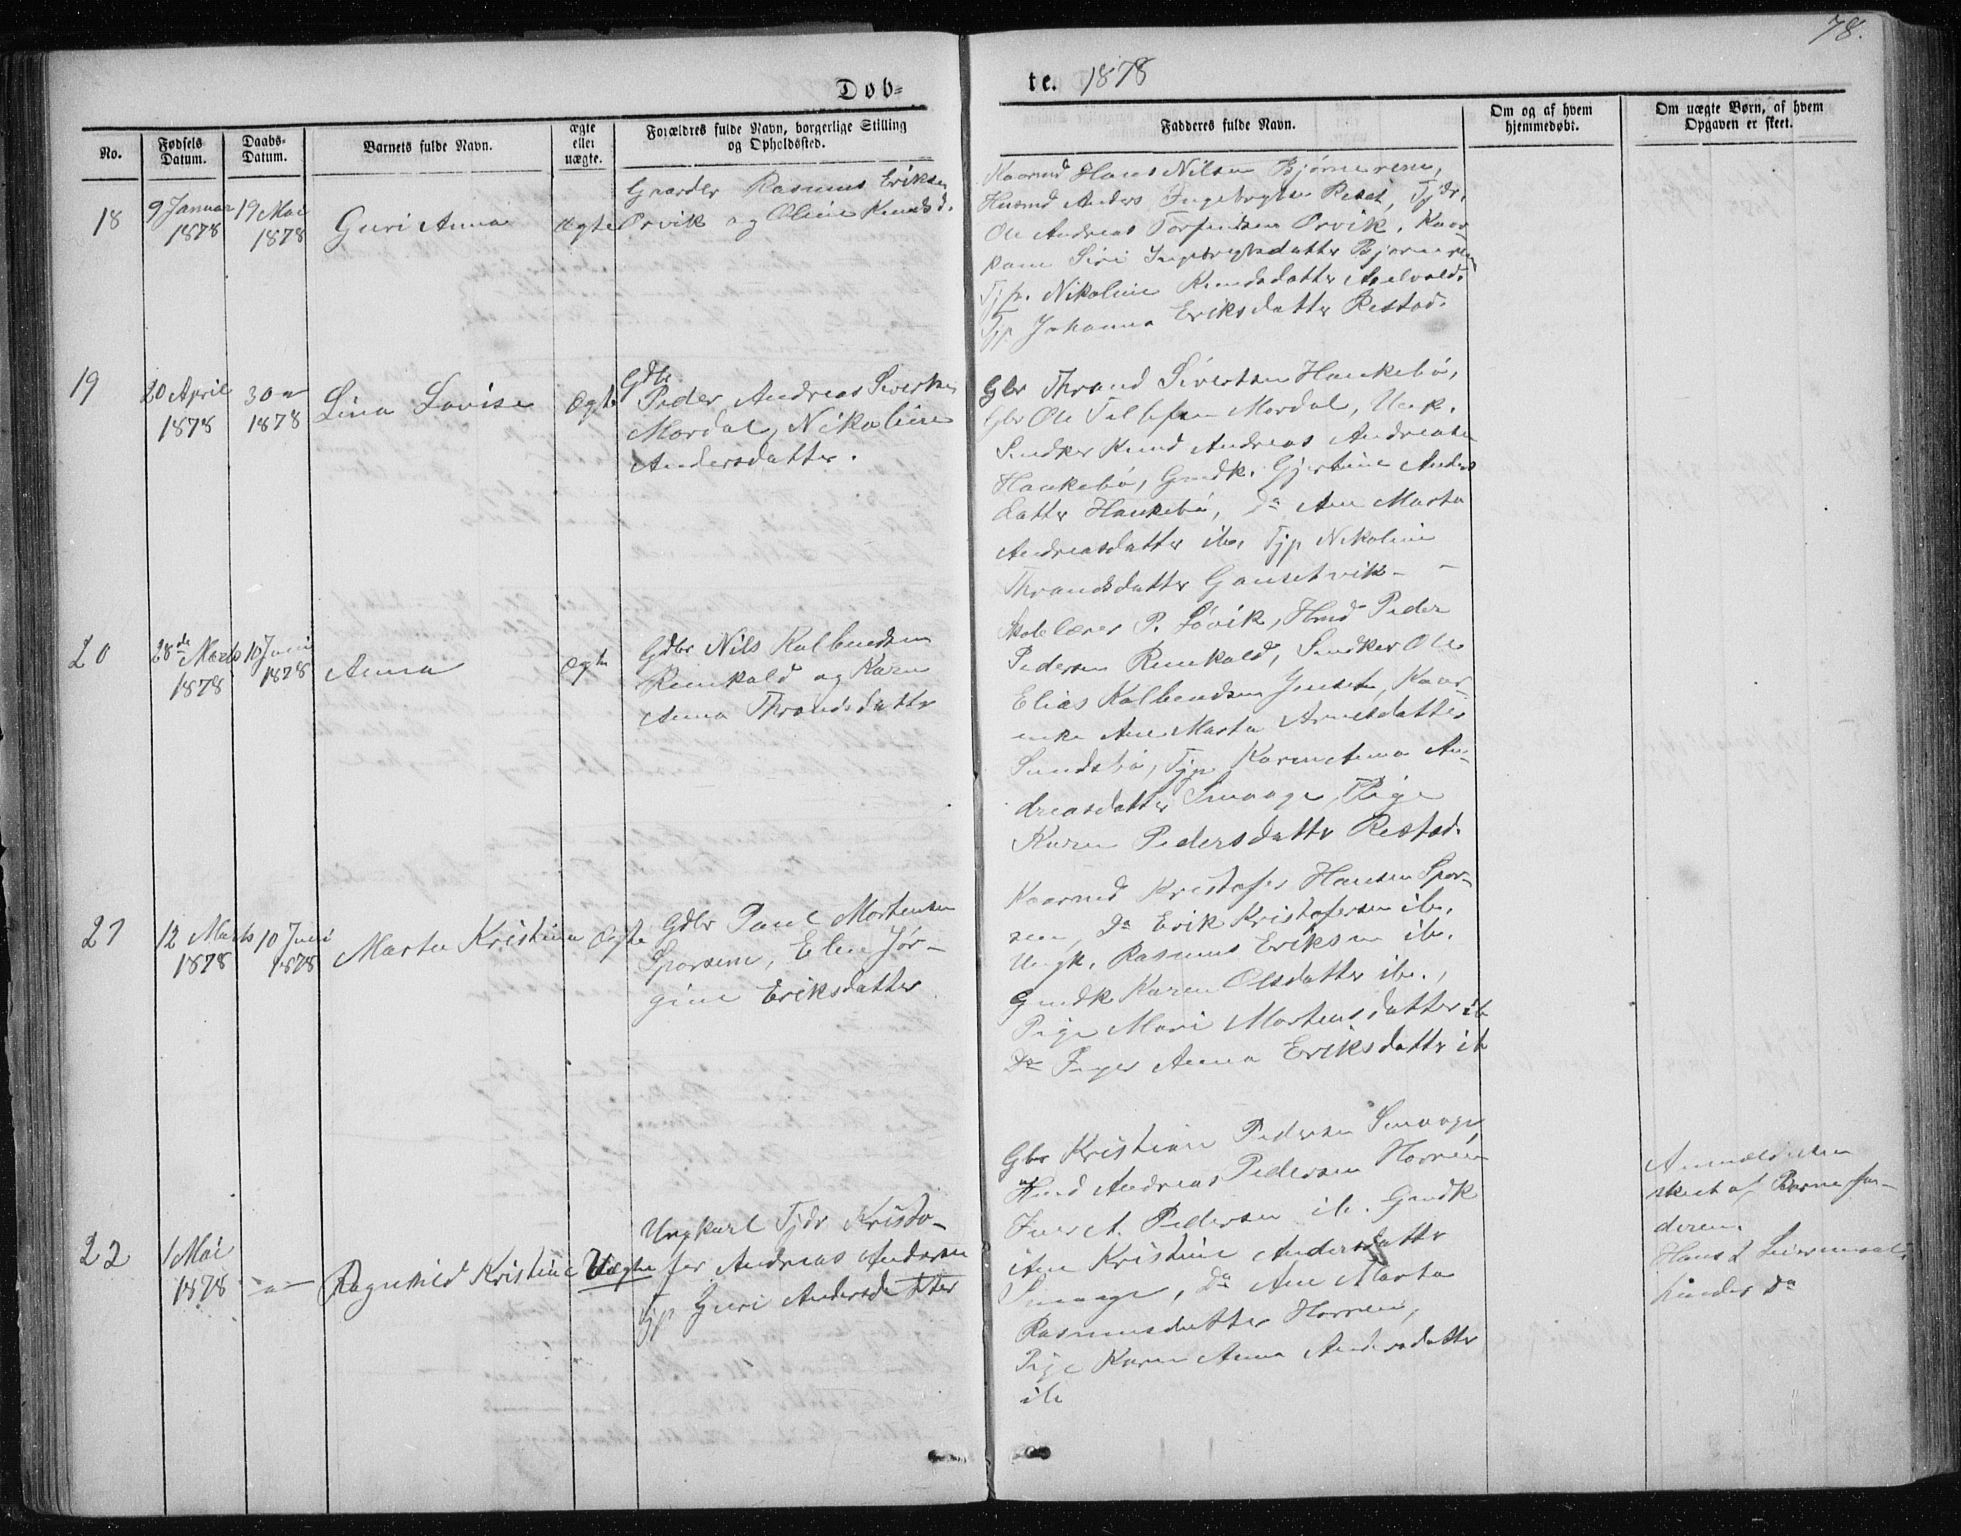 78.
Døb-
te. 1878
No.
Fødsels Datum.
Daabs-Datum.
Barnets fulde Navn.
ægte eller uægte.
Forældres fulde Navn, borgerlige Stilling
og Opholdssted.
Fadderes fulde Navn.
Om og af hvem
hjemmedøbt.
Om uægte Børn, af hvem
Opgaven er skeet.
18
9 Januar
1878
19 Mai
1878
Guri Anna
Ægte
Gaardbr Rasmus Eriksen
Orvik og Oline Knudsd.
Hans Nilsen Bjørnerem,
Husmd Anders Ingebrigtsen Restad, Tjdr.
Ole Andreas Torfinsen Orvik, Kaar-
kone Siri Ingebrigtsdatter Bjørnerem
Tjp. Nikoline Knudsdatter
Tjp Johanna Eriksdatter Restad.
19
20 April
1878
30
1878
Lina Lovise
Ægte
Gdbr
Peder Andreas Sivertsen
Mordal, Nikoline
Andersdatter.
Gbr Thrond Sivertsen Haukebø,
Gbr Ole Mordal, Ungk.
Knud Andreas Andreasen
Haukebø, Gmdk. Gjertine Anders
datter Haukebø, Do Ane Marta
Andreasdatter ib. Tjp Nikoline
Throndsdatter Gausetvik
20
28de Marts
1878
10 Juni
1878
Anna
Ægte
Gdbr Nils Kolbendsen
Reinkald og Karen
Anna Throndsdatter
Skolelærer P. Løvik, Hmd Peder
Pedersen Reinkald, Ole
Elias Kolbendsen Kaar-
enke Ane Marta Arnesdatter
Sundsbø, Tjp. Karen Anna An-
dreasdatter Smaage, Pige
Karen Pedersdatter Restad.
21
12 Marts
1878
10 Juni
1878
Marta Kristina
Ægte
Gdbr Paul Mortensen
Sporsem, Elen Jør-
gine Eriksdatter
Kaarmd Kristofer Hansen Spor-
sem, Do Erik Kristofersen ib.
Ungk. Rasmus Eriksen ib.
Gmdk Karen Olsdatter ib.,
Pige Mari Mortensdatter ib
Do Inger Anna Eriksdatter ib
22
1 Mai
1878
-"-
Ragnhild Kristine
Uægte
Ungkarl Tjdr Kristo-
fer Andreas Andersen
Tjp Guri Andersdatter
Gbr Kristian Pedersen Smaage
Hmd Andreas Pedersen Horrem
Iver A. Pedersen ib. Gmdk
Ane Kristine Andersdatter
Smaage, Do Ane Marta
Rasmusdatter Horrem,
Pige Karen Anna Andersdatter
ib
Anmeldelsen
skeet af Barnefa-
deren.
Hans 1 Leiermaal,
hendes Do